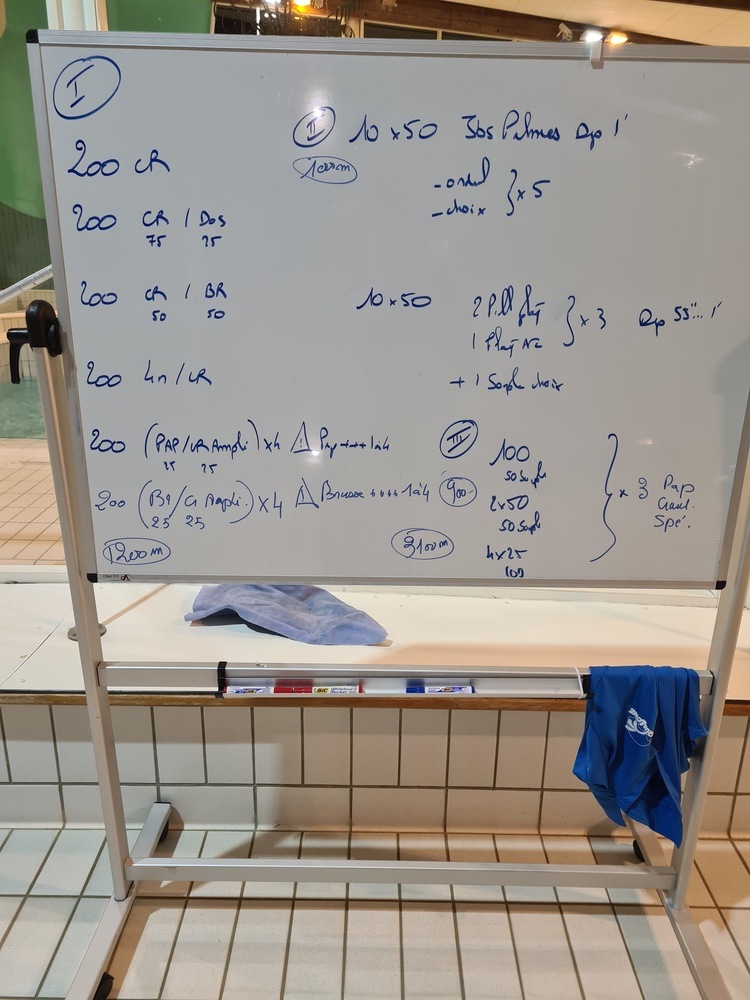 I
200 CR
200 CR / Dos
75 25
200 CR / BR
50 50
200 4n / CR
200 (PAP/CR Ampli) x4 ⚠ Pap +++ 1à4
25 25
200 (Br/Cr Ampli.) x4 ⚠ Brasse ++++ 1à4
25 25
1200m
II 10 x 50 Palmes Dp 1'
1000m
- choix } x 5
10 x 50 2 Pull } x 3 Dp 55"... 1'
1
+ 1 Souple choix
III
100
50 Souple
900
2x50
50 Souple
4x25
100
x 3 Pap
Spé.
3100m
BIC